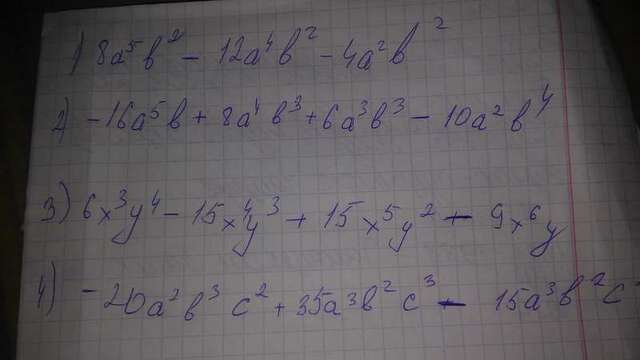 1) 8a⁵b⁴ - 12a⁴b² - 4a²b²
2) - 16a⁵b + 8a⁴b³ + 6a³b³ - 10a²b⁴
3) 6x³y⁴ - 15x⁴y³ + 15x⁵y² - 9x⁶y
4) - 20a²b³c² + 35a³b²c³ - 15a³b²c